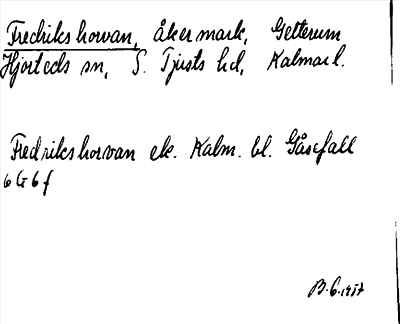 Fredrikshorvan, åkermark, Getterum
Hjorteds sn, S. Tjusts hd, Kalmar l.
Fredrikshorvan ek. Kalm. bl. Gåsefall
6 G 6 f
B. 6. 1957